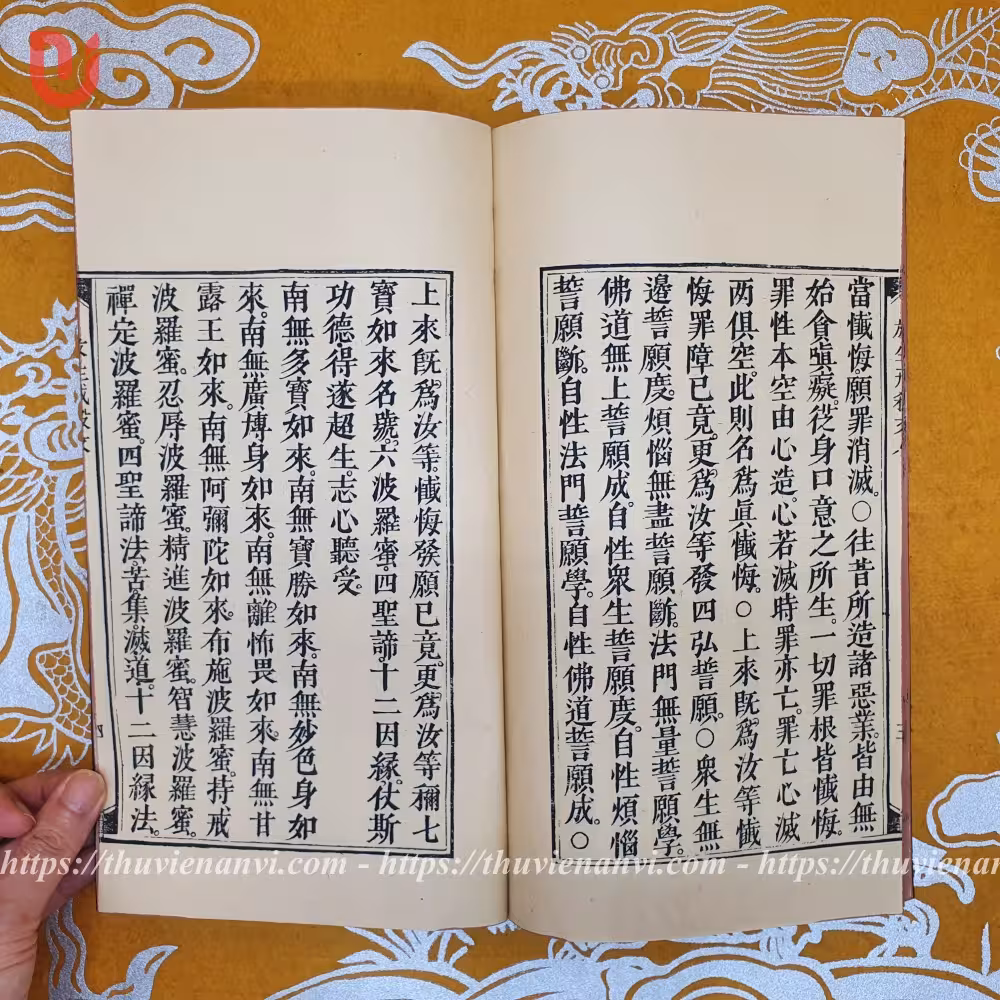 當懺悔。願罪消滅。○往昔所造諸惡業。皆由無
始貪瞋癡。從身口意之所生。一切罪根皆懺悔。
罪性本空由心造。心若滅時罪亦亡。罪亡心滅
两俱空。此則名爲眞懺悔。○上來旣爲汝等懺
悔罪障已竟。更爲汝等發四弘誓願。○衆生無
邊誓願度。煩惱無盡誓願斷。法門無量誓願學
佛道無上誓願成。自性衆生誓願度。自性煩惱
誓願斷。自性法門誓願學。自性佛道誓願成。○
三
上來旣爲汝等。懺悔發願已竟。更爲汝等稱七
寶如來名號。六波羅蜜。四聖諦。十二因緣。仗斯
功德得遂超生。志心聽受。
南無多寶如來。南無寶勝如來。南無妙色身如
來。南無廣博身如來。南無離怖畏如來。南無甘
露王如來。南無阿彌陀如來。布施波羅蜜。持戒
波羅蜜。忍辱波羅蜜。精進波羅蜜。智慧波羅蜜。
禪定波羅蜜。四聖諦法。苦。集。滅。道。十二因緣法。
四
https://thuvienanvi.com - https://thuvienanvi.com - https://thuviena